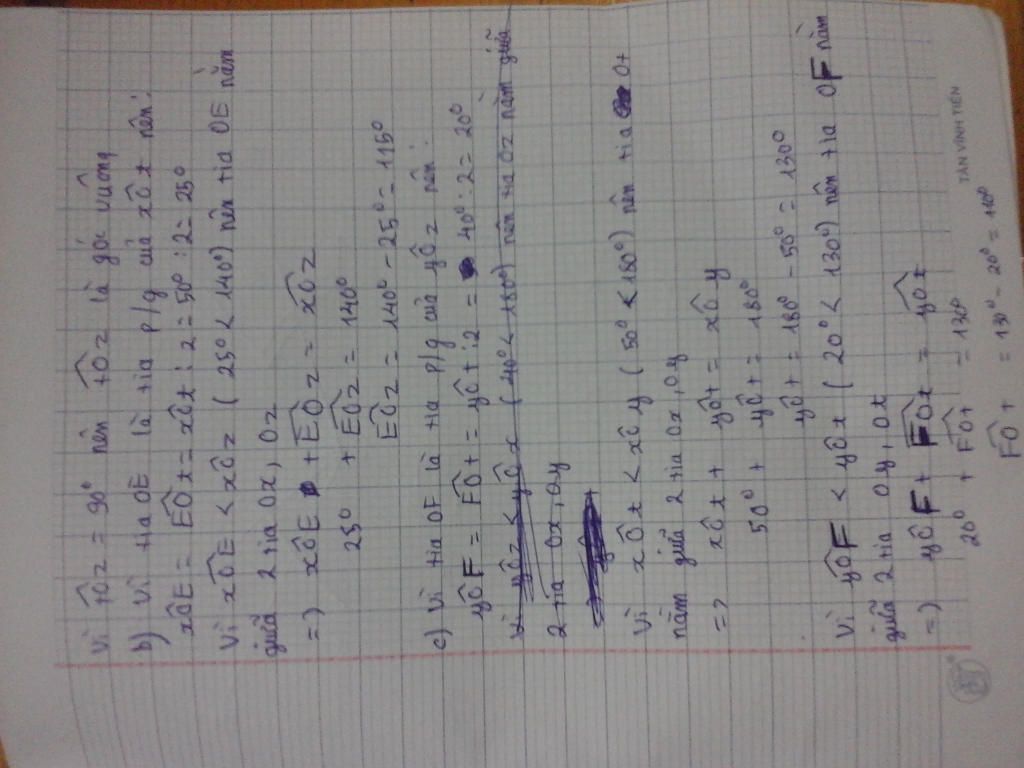 Vì tÔz = 90° nên tÔz là góc vuông
b) Vì tia OE là tia p/g của xÔt nên:
xÔE = EÔt = xÔt : 2 = 50° : 2 = 25°
Vì xÔE < xÔz ( 25° < 140°) nên tia OE nằm
giữa 2 tia Ox, Oz
=) xÔE + EÔz = xÔz
25° + EÔz = 140°
EÔz = 140° - 25° = 115°
c) Vì tia OF là tia p/g của yÔz nên:
yÔF = FÔt = yÔt : 2 = 40° : 2 = 20°
Vì yÔz < yÔx (40° < 180°) nên tia Oz nằm giữa
2 tia Ox, Oy
Vì xÔt < xÔy ( 50° < 180°) nên tia Ot
nằm giữa 2 tia Ox, Oy
=> xÔt + yÔt = xÔy
50° + yÔt = 180°
yÔt = 180° - 50° = 130°
Vì yÔF < yÔt ( 20° < 130°) nên tia OF nằm
giữa 2 tia Oy, Ot
=) yÔF + FÔt = yÔt
20° + FÔt = 130°
FÔt = 130° - 20° = 110°
TÂN VĨNH TIẾN